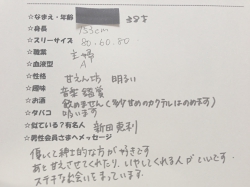 ☆なまえ・年齢 38才
☆身長 153cm
☆スリーサイズ 80.60.80
☆職業 主婦
☆血液型 A
☆性格 甘えん坊 明るい
☆趣味 音楽鑑賞
☆お酒 飲めません(多少甘めのカクテルはのめます)
☆タバコ 吸います
☆似ている?有名人 新田恵利
☆男性会員さまへメッセージ
優しくて紳士的な方が好きです
あと甘えさせてくれたり、いやしてくれる人がいいです。
ステキな出会いをまっています。